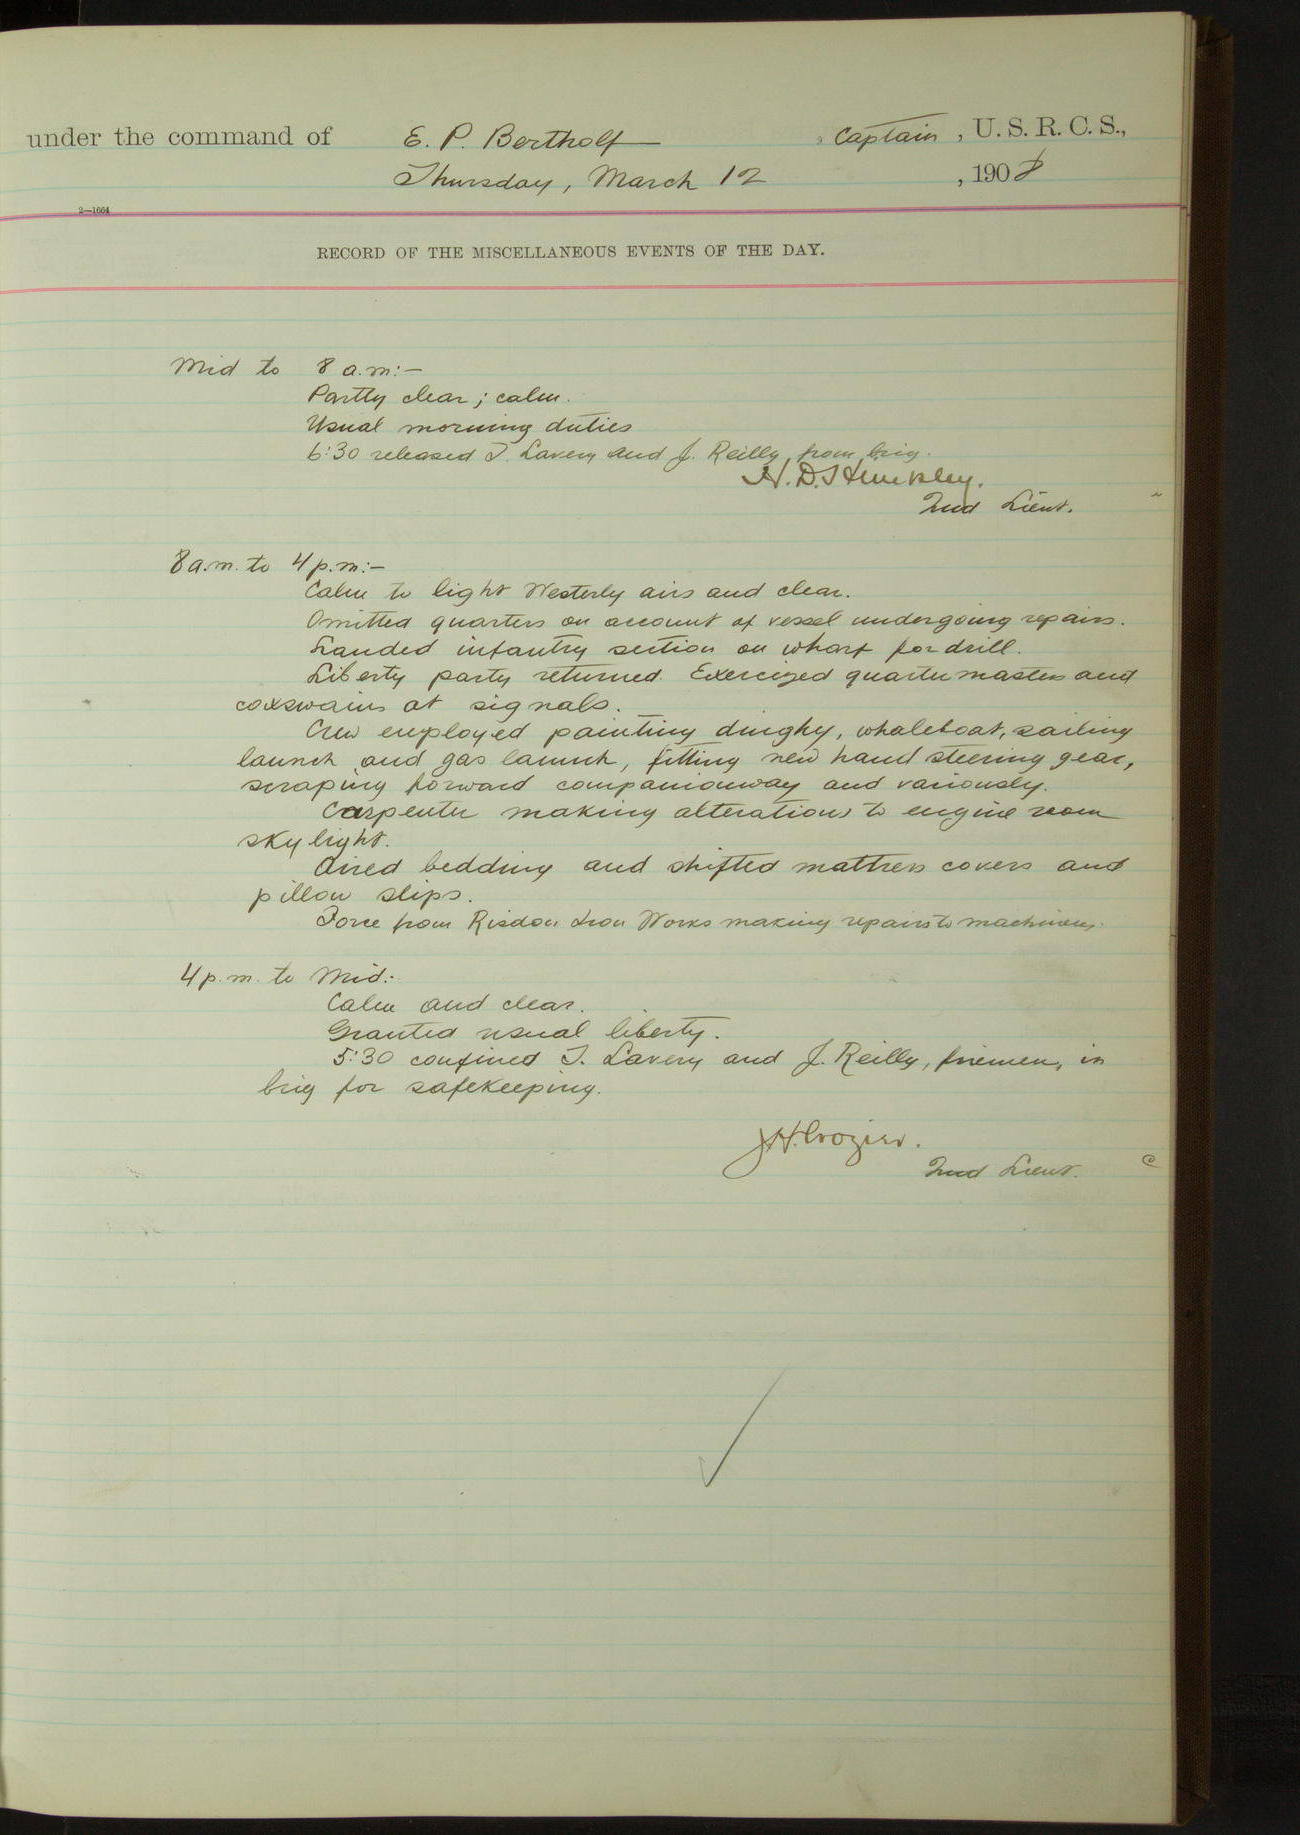 under the command of E. P. Bertholf, Captain, U. S. R. C. S.,
Thursday, March 12, 1908
2—1664
RECORD OF THE MISCELLANEOUS EVENTS OF THE DAY.
Mid to 8 a.m:—
Partly clear; calm.
Usual morning duties
6:30 released T. Lavery and J. Reilly, from brig.
H. D. Hinckley.
2nd Lieut.
8 a.m. to 4 p.m:—
Calm to light Westerly airs and clear.
Omitted quarters on account of vessel undergoing repairs.
Landed infantry section on wharf for drill.
Liberty party returned. Exercized quartermasters and
coxswains at signals.
Crew employed painting dinghy, whaleboat, sailing
launch and gas launch, fitting new hand steering gear,
scraping forward companionway and variously.
Carpenter making alterations to engine room
skylight.
Aired bedding and shifted mattress covers and
pillow slips.
Force from Risdon Iron Works making repairs to machinery.
4 p.m. to Mid:-
Calm and clear.
Granted usual liberty.
5:30 confined T. Lavery and J. Reilly, firemen, in
brig for safekeeping.
J H Crozier.
2nd Lieut.